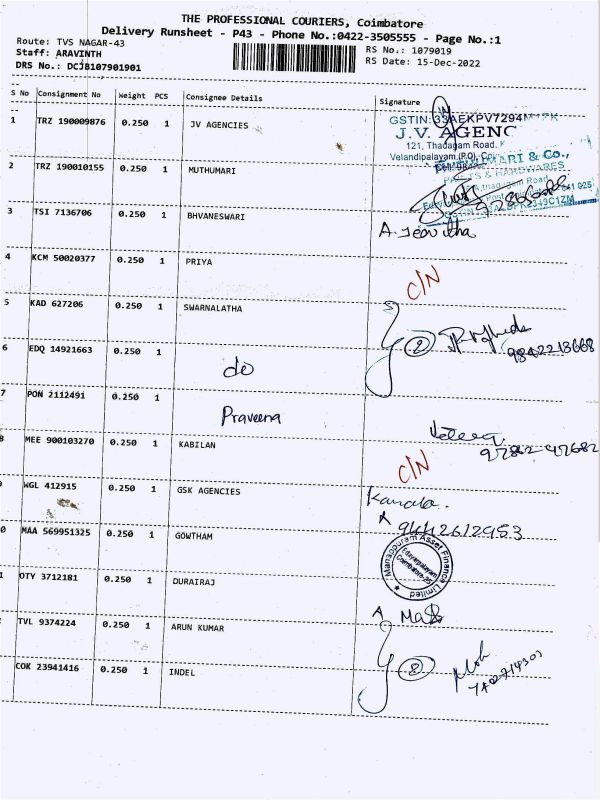 THE PROFESSIONAL COURIERS, Coimbatore
Delivery Runsheet - P43 - Phone No.:0422-3505555 - Page No.:1
Route: TVS NAGAR-43
RS No.: 1079019
Staff: ARAVINTH
RS Date: 15-Dec-2022
DRS No.: DCJB107901901
S No Consignment No Weight PCS Consignee Details Signature
1 TRZ 190009876 0.250 1 JV AGENCIES
GSTIN:33AEKPV7294
J.V. AGENC
121, Thadagam Road,
Velandipalayam (P.O),
& Co.,
& HARDWARES
2 TRZ 190010155 0.250 1 MUTHUMARI
3 TSI 7136706 0.250 1 BHVANESWARI
4 KCM 50020377 0.250 1 PRIYA
C/N
5 KAD 627206 0.250 1 SWARNALATHA
2
9842218668
6 EDQ 14921663 0.250 1
do
7 PON 2112491 0.250 1
Praveena
8 MEE 900103270 0.250 1 KABILAN
C/N
WGL 412915 0.250 1 GSK AGENCIES
Kanala.
9442612953
0 MAA 569951325 0.250 1 GOWTHAM
Manappuram Asset Finance Limited
Edayarpalayam
Coimbatore-25
OTY 3712181 0.250 1 DURAIRAJ
TVL 9374224 0.250 1 ARUN KUMAR
COK 23941416 0.250 1 INDEL
8